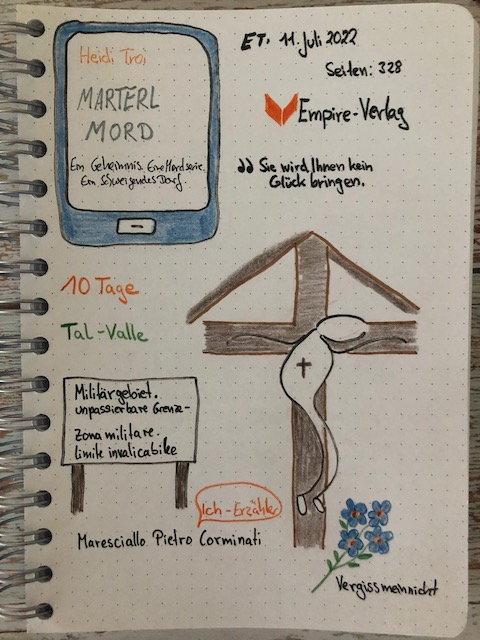 Heidi Troi
MARTERL
MORD
Ein Geheimnis. Eine Mordserie.
Ein schweigendes Dorf.
ET: 11. Juli 2022
Seiten: 328
Empire-Verlag
Sie wird Ihnen kein
Glück bringen.
10 Tage
Tal-Valle
Militärgebiet.
unpassierbare Grenze-
Zona militare.
limite invalicabile
Ich-Erzähler
Maresciallo Pietro Corminati
Vergissmeinnicht